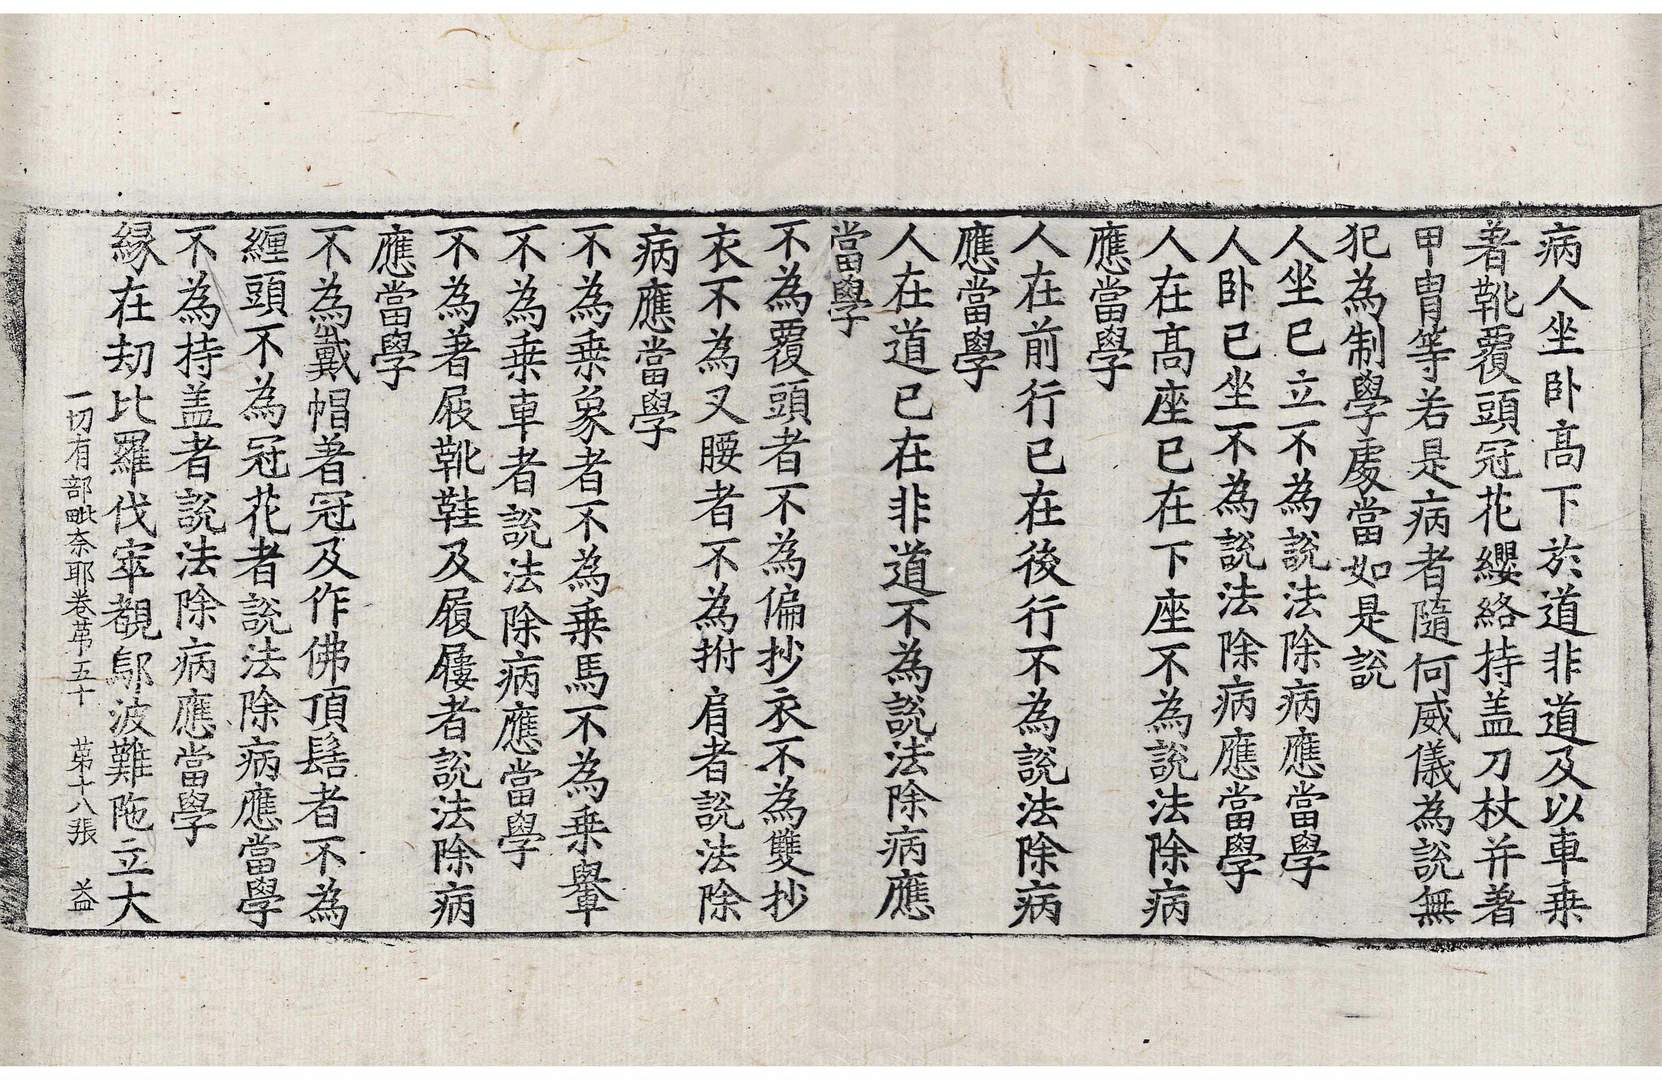 病人坐卧高下於道非道及以車乗
著靴覆頭冠花纓絡持盖刀杖并著
甲胄等若是病者隨何威儀為說無
犯為制學處當如是說
人坐已立不為說法除病應當學
人卧已坐不為說法除病應當學
人在高座已在下座不為說法除病
應當學
人在前行已在後行不為說法除病
應當學
人在道已在非道不為說法除病應
當學
不為覆頭者不為偏抄衣不為雙抄
衣不為叉腰者不為拊肩者說法除
病應當學
不為乗象者不為乗馬不為乗轝
不為乗車者說法除病應當學
不為著屐靴鞋及履屨者說法除病
應當學
不為戴帽著冠及作佛頂髻者不為
纏頭不為冠花者說法除病應當學
不為持盖者說法除病應當學
縁在劫比羅伐窣覩鄔波難陁立大
一切有部毗奈耶卷苐五十 苐十八張 益